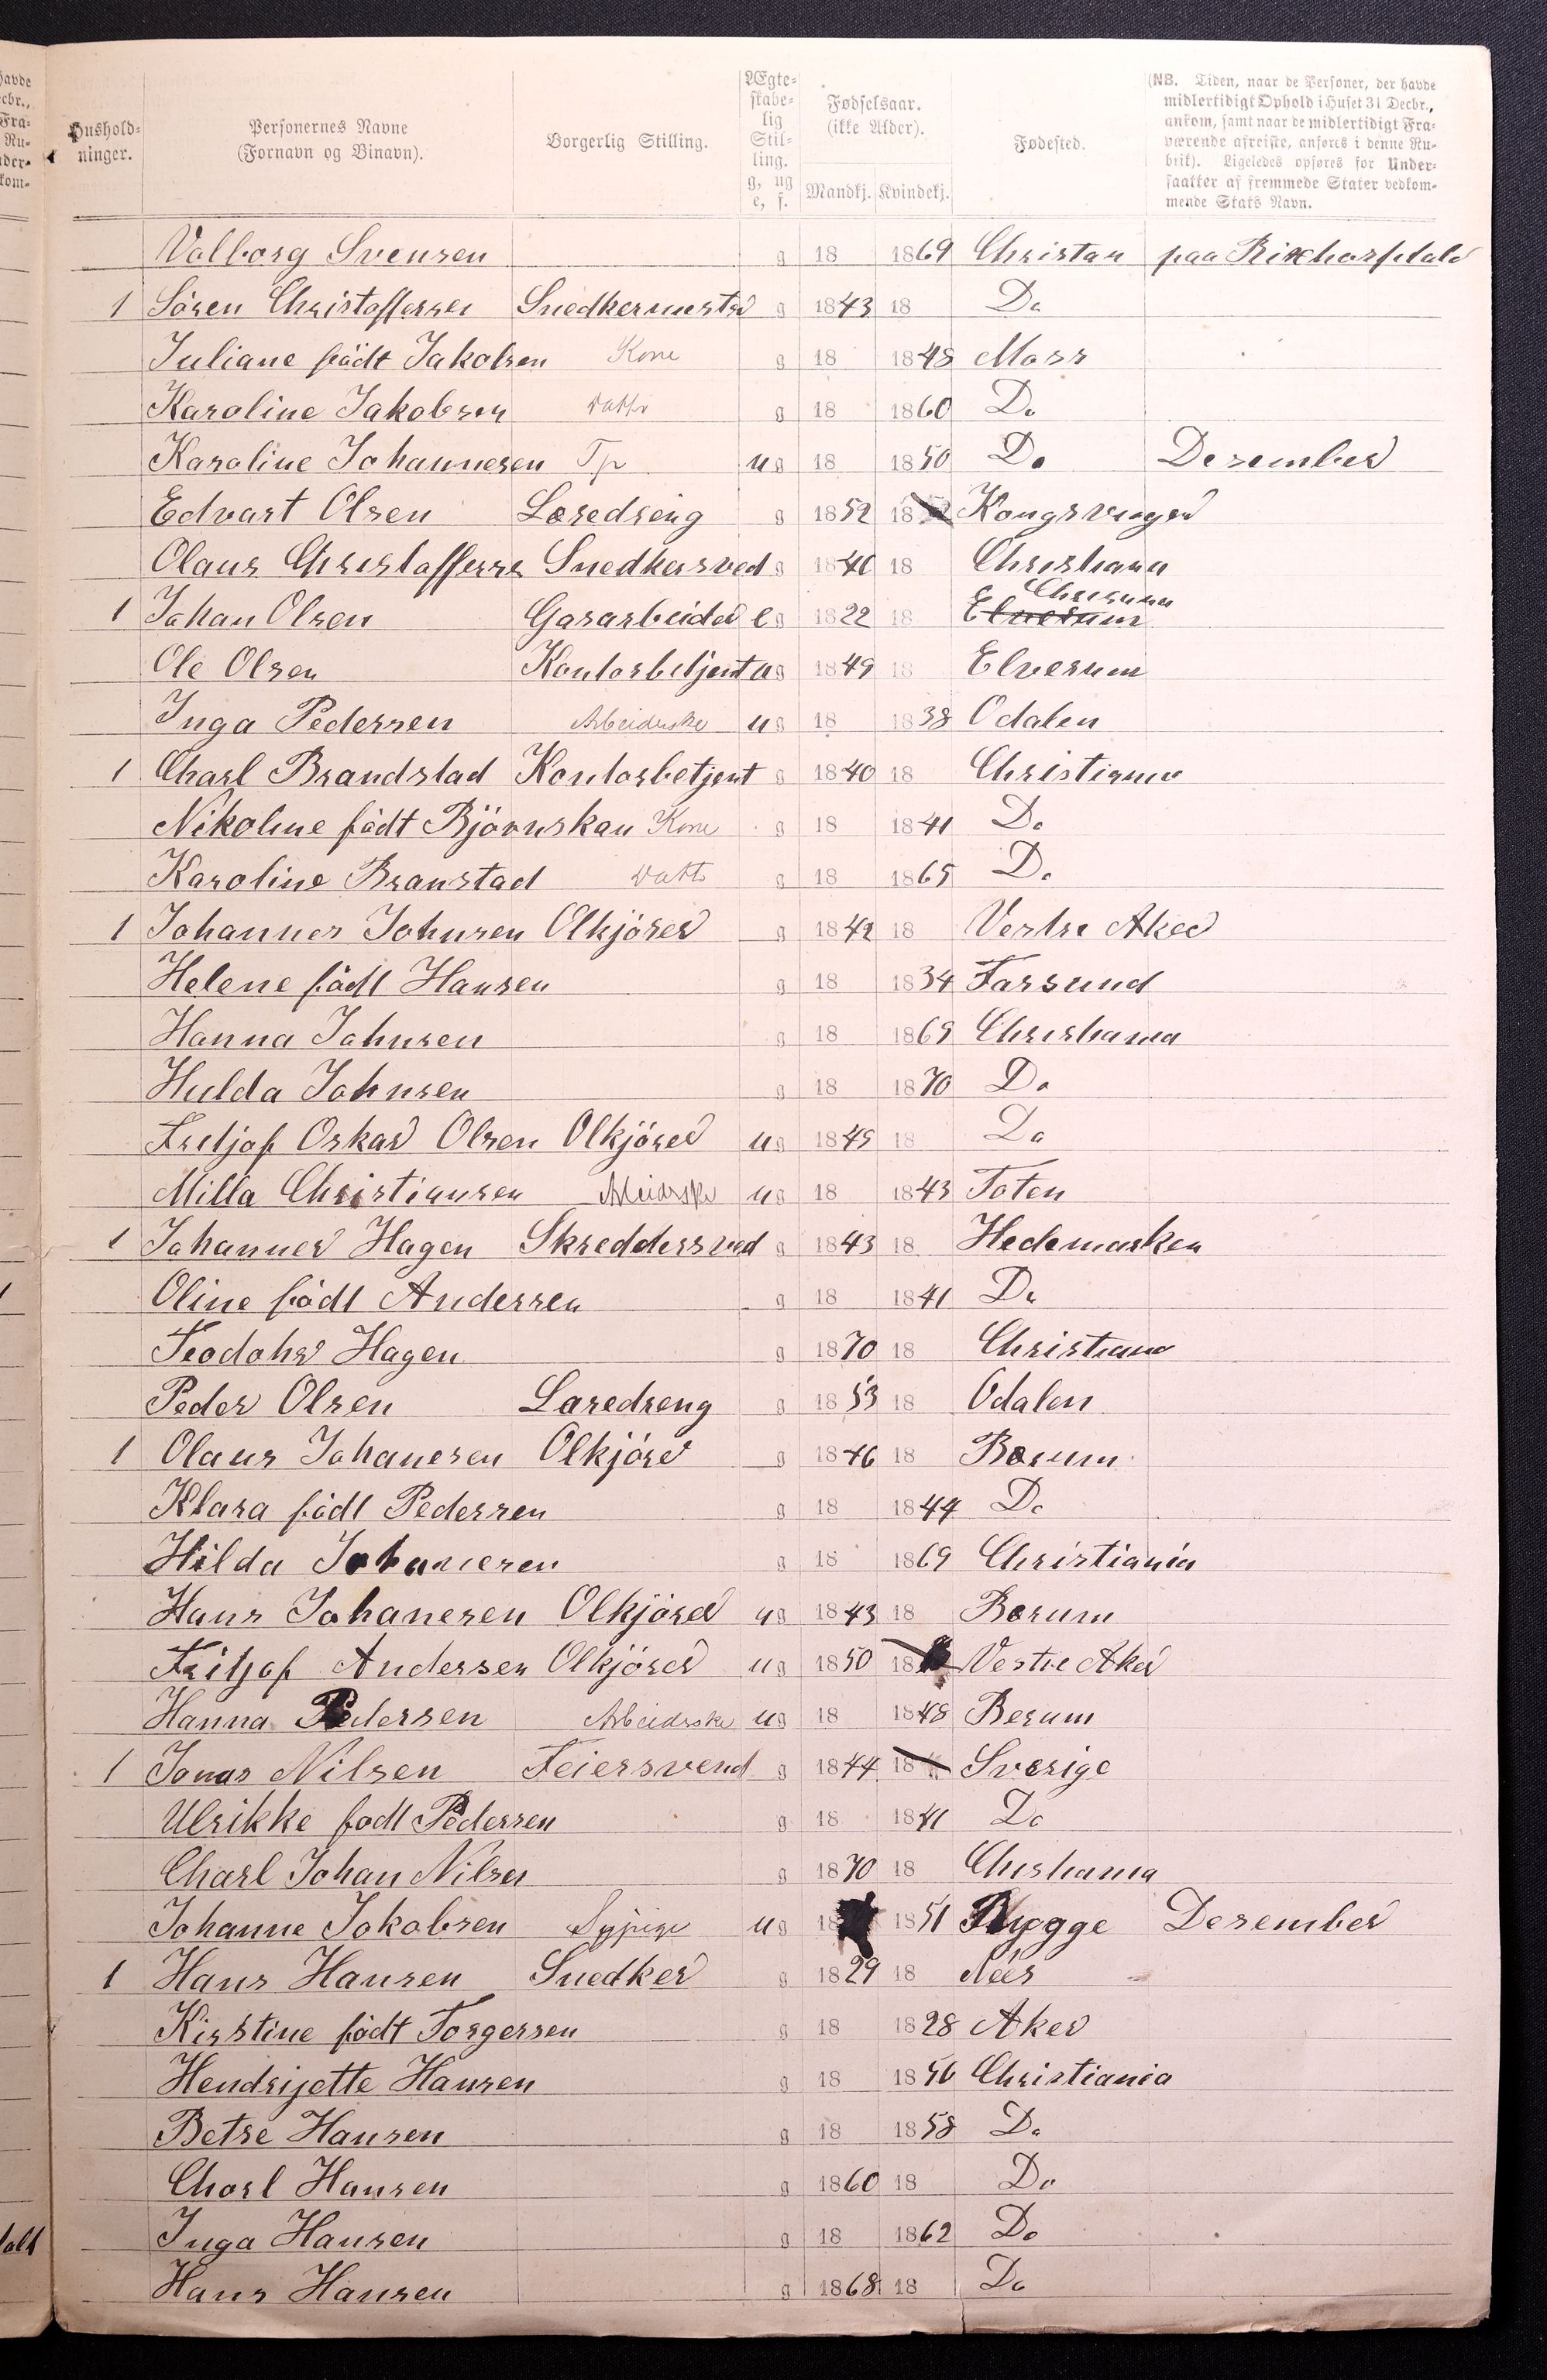 Hushold-
ninger.
Personernes Navne
(Fornavn og Binavn).
Borgerlig Stilling.
Ægte-
skabe-
lig
Stil-
ling.
g, ug
e, f.
Fødselsaar.
(ikke Alder).
Mandkj. Kvindekj.
Fødested.
(NB. Tiden, naar de Personer, der havde
midlertidigt Ophold i Huset 31 Decbr.,
ankom, samt naar de midlertidigt Fra-
værende afreiste, anføres i denne Ru-
brik). Ligeledes opføres for Under-
saatter af fremmede Stater vedkom-
mende Stats Navn.
Valborg Svensen g 18 1869 Christan paa
1 Sören Christoffersen Snedkermester g 1843 18 Do
Juliane födt Jakobsen Kone g 18 1848 Moss
Karoline Jakobsen Datter g 18 1860 Do
Karoline Johannesen Tp ug 18 1850 Do Desember
Edvart Olsen Læredreng g 1852 18 Kongsvinger
Olaus Christoffersen Snedkersved g 1840 18 Christiania
1 Johan Olsen Gasarbeider eg 1822 18 Elverum Christiania
Ole Olsen Kontorbetjent ug 1849 18 Elverum
Inga Pedersen Arbeiderske ug 18 1838 Odalen
1 Charl Brandstad Kontorbetjent g 1840 18 Christiania
Nikoline födt Björnskau Kone g 18 1841 Do
Karoline Branstad Datter g 18 1865 Do
1 Johannes Johnsen Olkjörer g 1842 18 Vestre Aker
Helene födt Hansen g 18 1834 Farsund
Hanna Johnsen g 18 1869 Christiania
Hulda Johnsen g 18 1870 Do
Fritjof Oskar Olsen Olkjörer ug 1845 18 Do
Milla Christiansen Arbeiderske ug 18 1843 Toten
1 Johannes Hagen Skreddersved g 1843 18 Hedemarken
Oline födt Andersen g 18 1841 Do
Teodohr Hagen g 1870 18 Christiania
Peder Olsen Laredreng g 1853 18 Odalen
1 Olaus Johanesen Olkjörer g 1846 18 Bærum
Klara födt Pedersen g 18 1844 Do
Hilda Johanesen g 18 1869 Christiania
Hans Johanesen Olkjörer ug 1843 18 Bærum
Fritjof Andersen Olkjörer ug 1850 18 Vestre Aker
Hanna Pedersen Arbeiderske ug 18 1848 Berum
1 Jonas Nilsen Feiersvend g 1844 18 Sverige
Ulrikke födt Pedersen g 18 1841 Do
Charl Johan Nilsen g 1870 18 Christiania
Johanne Jakobsen Sypige ug 18 1851 Rygge Desember
1 Hans Hansen Snedker g 1829 18 Nes
Kirstine födt Torgersen g 18 1828 Aker
Hendrijette Hansen g 18 1856 Christiania
Betse Hansen g 18 1858 Do
Charl Hansen g 1860 18 Do
Inga Hansen g 18 1862 Do
Hans Hansen g 1868 18 Do